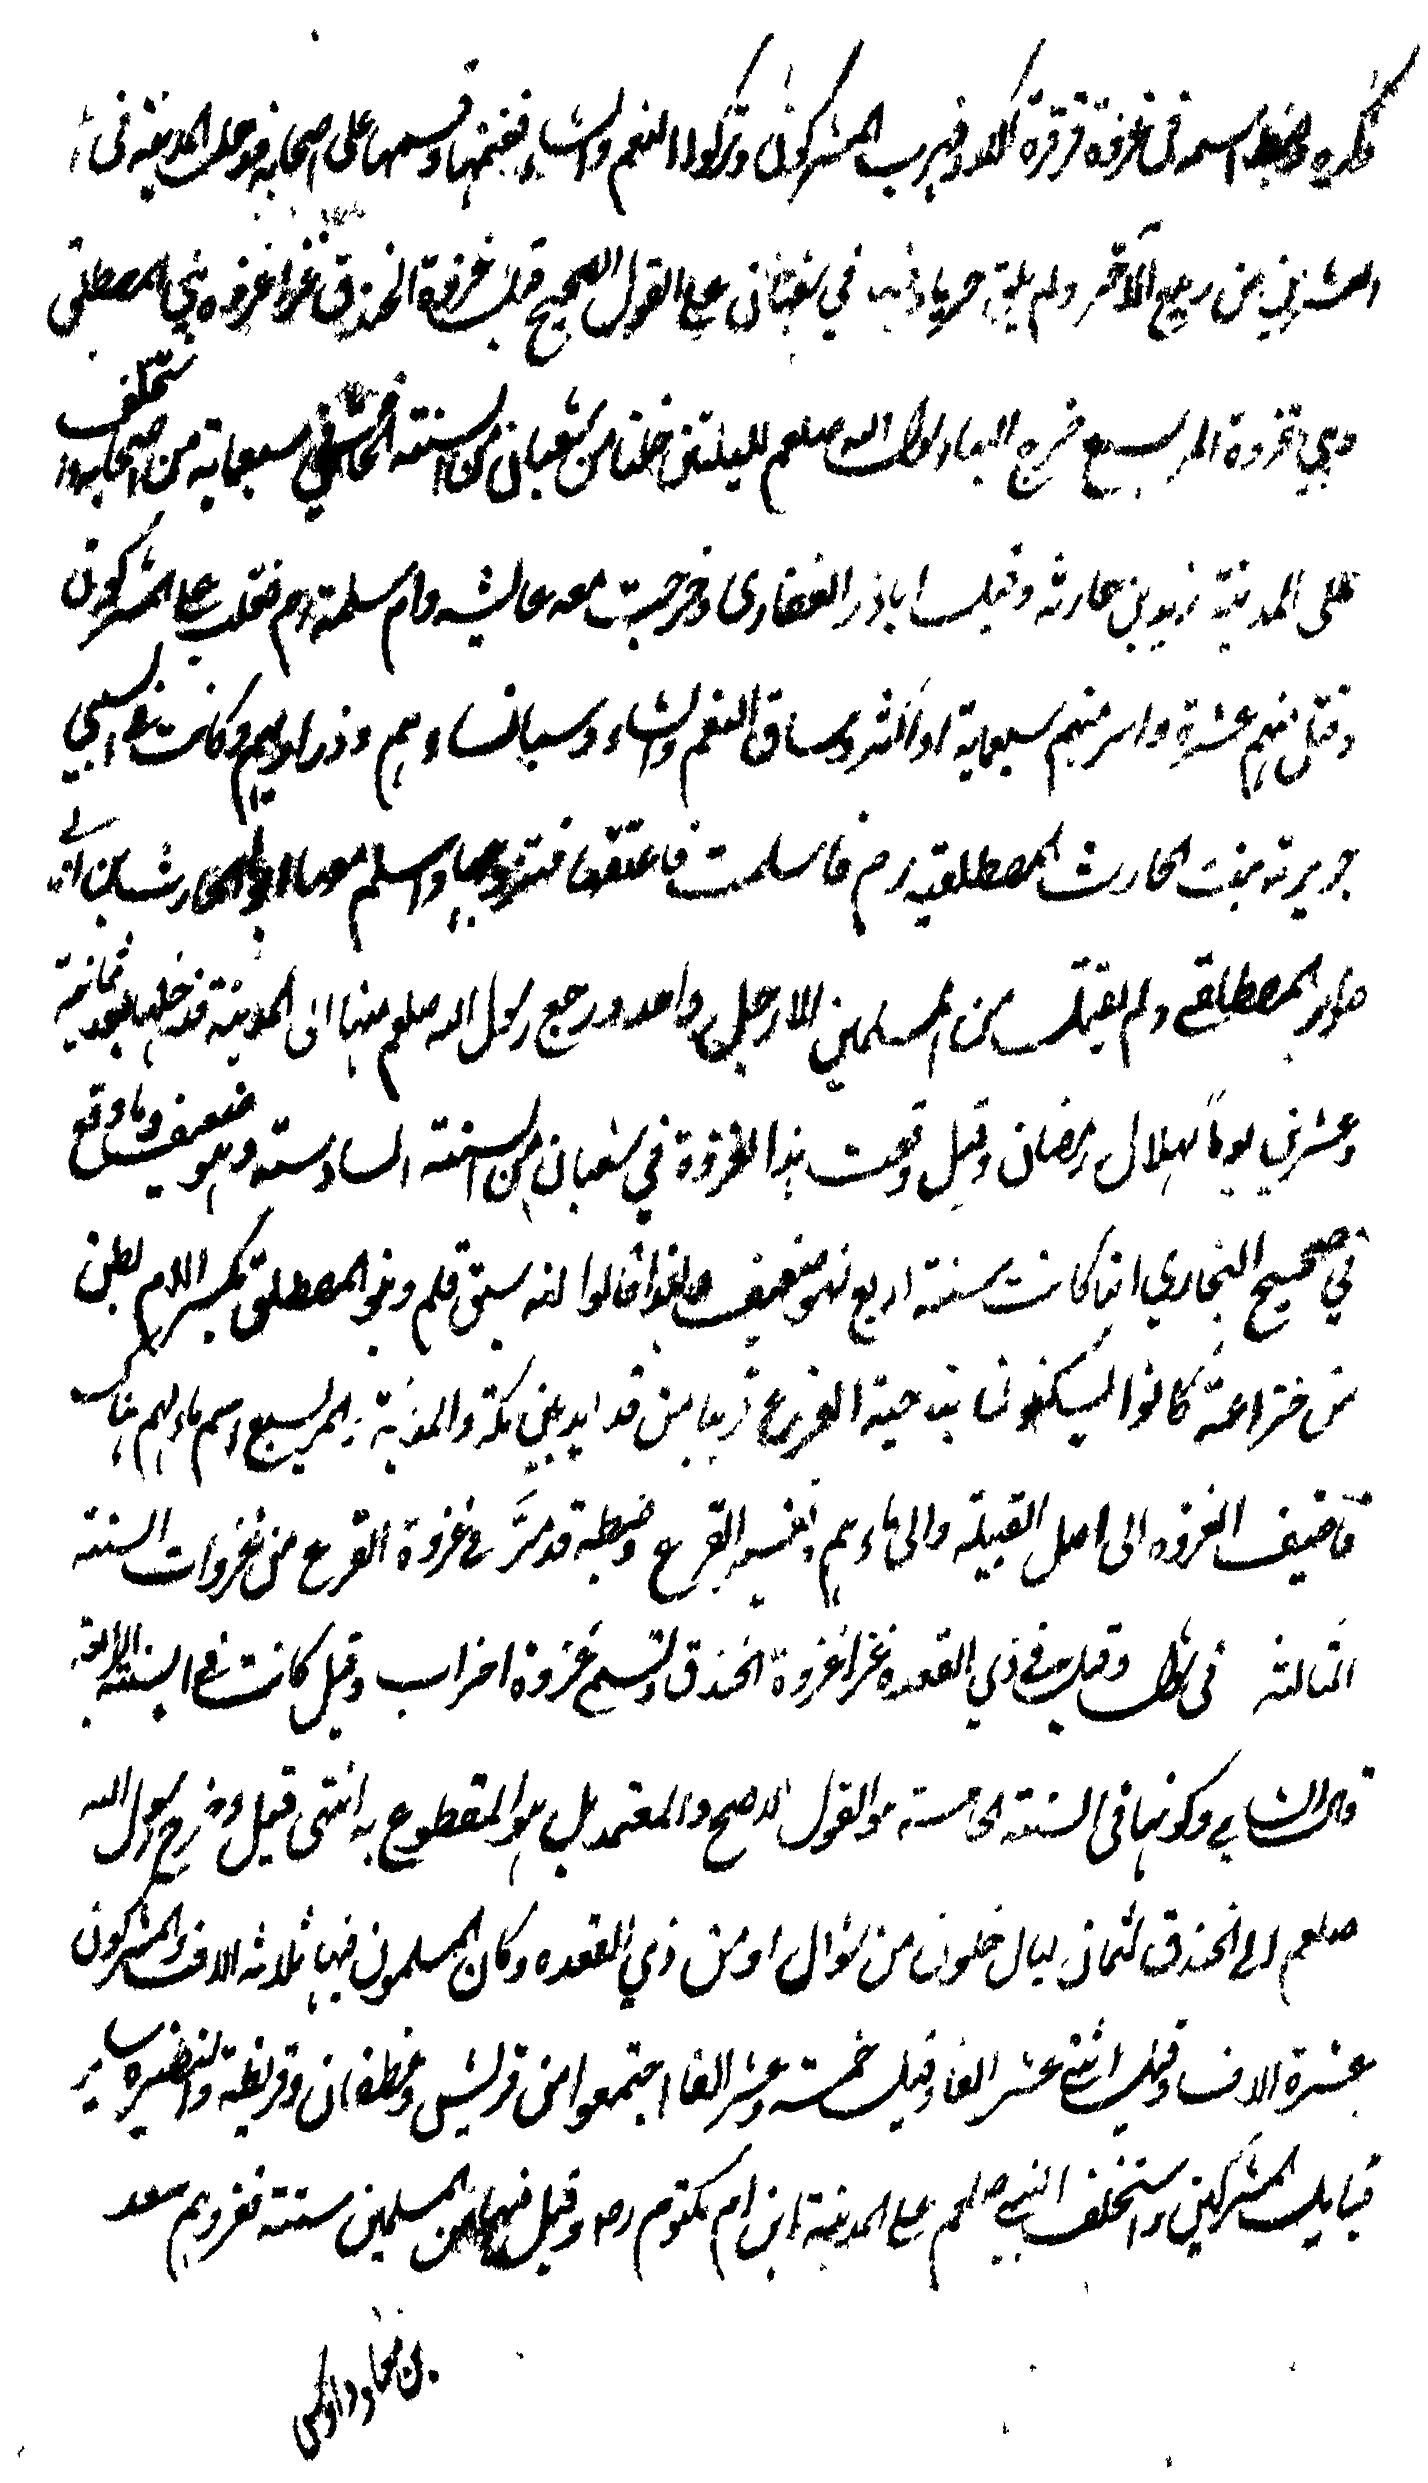 ذكره وضبط اسمه في غزوة قرقرة الكدر فهرب المشركون وتركوا النعم والشاء فغنمها وقسمها على اصحابه فدخل المدينة في
العشرين من ربيع الآخر ولم يلق حربا في شعبان على القول الصحيح قبل غزوة الخندق غزا غزوة بني المصطلق
وهي غزوة المريسيع خرج اليها رسول الله صلعم لليلتين خلتا من شعبان من السنة الخامسة في سبعماية من اصحابه واستخلف
على المدينة زيد بن حارثه وقيل اباذر الغفاري وخرجت معه عايشه وام سلمة رم فغلب على المشركون
وقتل منهم عشرة واسر منهم سبعماية او اكثر وساق النعم والشاء وسبا نساءهم وذراريهم وكانت في السبي
جويرية بنت الحارث المصطلقيه رم فاسلمت فاعتقها فتزوجها واسلم معها ابوها الحارث بن ابي
ضرار المصطلقي ولم يقتل من المسلمين الا رجل واحد ورجع رسول الله صلعم منها الى المدينة فدخلها بعد ثمانية
وعشرين يوماً لهلال رمضان وقيل وقعت هذا الغزوة في شعبان من السنة السادسته وهو ضعيف وما وقع
في صحيح البخاري انها كانت سنة اربع فهو ضعيف ايضا قالوا انه سبق قلم وبنو المصطلق بكسر اللام بطن
من خزاعة كانوا يسكنون بناحية الفرع قريبا من قديد بين مكة والمدينة والمريسيع اسم ماء لهم هناك
فاضيف الغزوه الى اصل القبيلة والى ماءهم وتفسير القرع وضبطه قد مرّ في غزوة القرع من غزوات السنة
الثالثه في شوال وقيل في ذي القعده غزا غزوة الخندق وتسمى غزوة احزاب وقيل كانت في السنة الرابعة
قال الشامي وكونها في السنة الخامسة هو القول الاصح والمعتمد بل هو المقطوع به انتهى قيل وخرج رسول الله
صلعم الى الخندق لثمان ليال خلون من شوال او من ذي القعده وكان المسلمون فيها ثلاثه الاف والمشركون
عشرة الاف وقيل اثني عشر الفا وقيل خمسة وعشر الفا اجتمعوا من قريش وغطفان وقريظة والنضير وساير
قبايل المشركين واستخلف النبي صلعم على المدينة ابن ام مكتوم رم وقيل فيها من المسلمين ستة نفر وهم سعد
بن معاذ